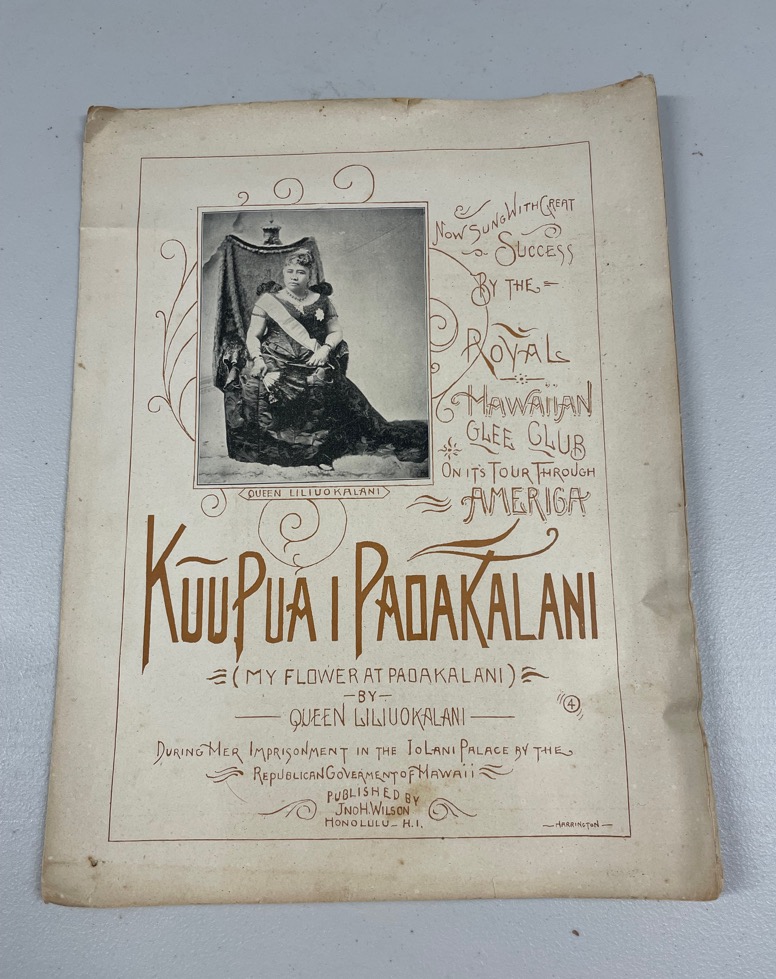 NOW SUNG WITH GREAT
SUCCESS
BY THE
ROYAL
HAWAIIAN
GLEE CLUB
ON IT'S TOUR THROUGH
AMERICA
QUEEN LILIUOKALANI
KUUPUA I PAOAKALANI
(MY FLOWER AT PAOAKALANI)
—BY—
QUEEN LILIUOKALANI
4
DURING HER IMPRISONMENT IN THE IOLANI PALACE BY THE
REPUBLICAN GOVERMENT OF HAWAII
PUBLISHED BY
JNO H. WILSON
HONOLULU - H.I.
—HARRINGTON—